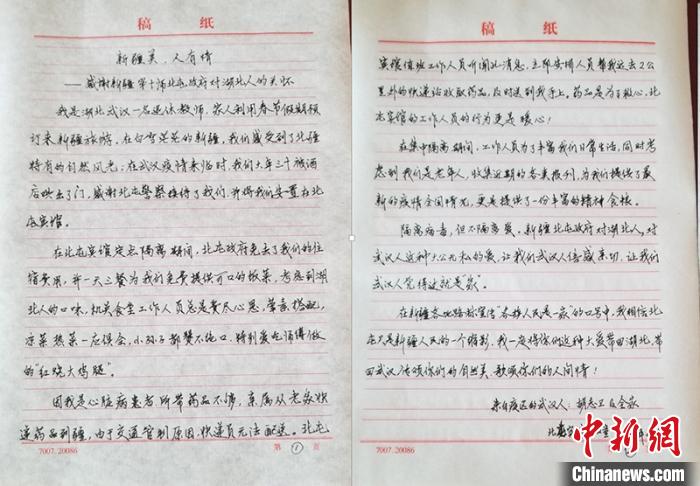 稿 纸
新疆美、人有情
——感谢新疆第十师北屯政府对湖北人的关怀
我是湖北武汉一名退休教师,家人利用春节假期预
订来新疆旅游。在白雪茫茫的新疆,我们感受到了北疆
特有的自然风光;在武汉疫情来临时,我们大年三十被酒
店哄出了门,感谢北屯警察接待了我们,并将我们安置在北
屯宾馆。
在北屯宾馆定点隔离期间,北屯政府免去了我们的住
宿费用,并一天三餐为我们免费提供可口的饭菜,考虑到湖
北人的口味,机关食堂工作人员总是费尽心思,荤素搭配,
凉菜热菜一应俱全,小孙子都赞不绝口,特别爱吃师傅做
的“红烧大鸡腿”。
因我是心脏病患者,所带药品不够,亲属从老家快
递药品到疆,由于交通管制原因,快递员无法配送。北屯
7007.20086 第 1 页
稿 纸
宾馆值班工作人员听闻此消息,立即安排人员帮我远去2公
里外的快递站收取药品,及时送到我手上。药品是为了救心,北
屯宾馆的工作人员的行为更是暖心!
在集中隔离期间,工作人员为了丰富我们日常生活,同时考
虑到我们是老年人,收集近期的各类报刊,为我们提供了最
新的疫情全国情况,更是提供了一份丰富的精神食粮。
隔离病毒,但不隔离爱。新疆北屯政府对湖北人、对
武汉人这种大公无私的爱,让我们武汉人倍感亲切,让我们
武汉人觉得这就是“家”。
在新疆各地路牌宣传“各族人民是一家”的口号中,我相信北
屯只是新疆人民的一个缩影,我一定将你们这种大爱带回湖北,带
回武汉,传颂你们的自然美、歌颂你们的人间情!
来自疫区的武汉人:胡志卫及全家
北屯
7007.20086
中新网
Chinanews.com